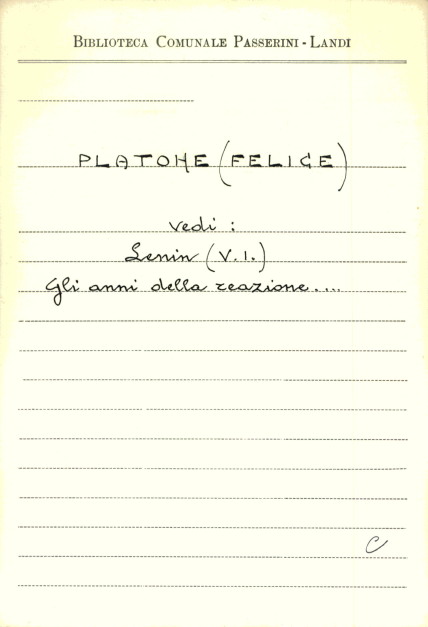 BIBLIOTECA COMUNALE PASSERINI - LANDI
PLATONE (FELICE)
vedi :
Lenin (V. I.)
Gli anni della reazione....
C